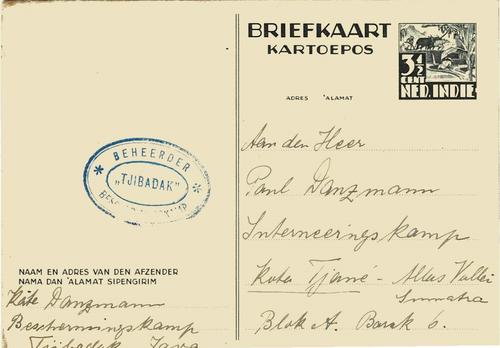 BRIEFKAART
KARTOEPOS
3½
CENT
NED. INDIE
ADRES 'ALAMAT
* BEHEERDER *
„TJIBADAK"
Aan den Heer
Paul Danzmann
Interneeringskamp
Kota Tjané - Allas Vallei
Sumatra
Blok A. Barak 6.
NAAM EN ADRES VAN DEN AFZENDER
NAMA DAN 'ALAMAT SIPENGIRIM
Käte Danzmann
Beschermingskamp
Tjibadak Java